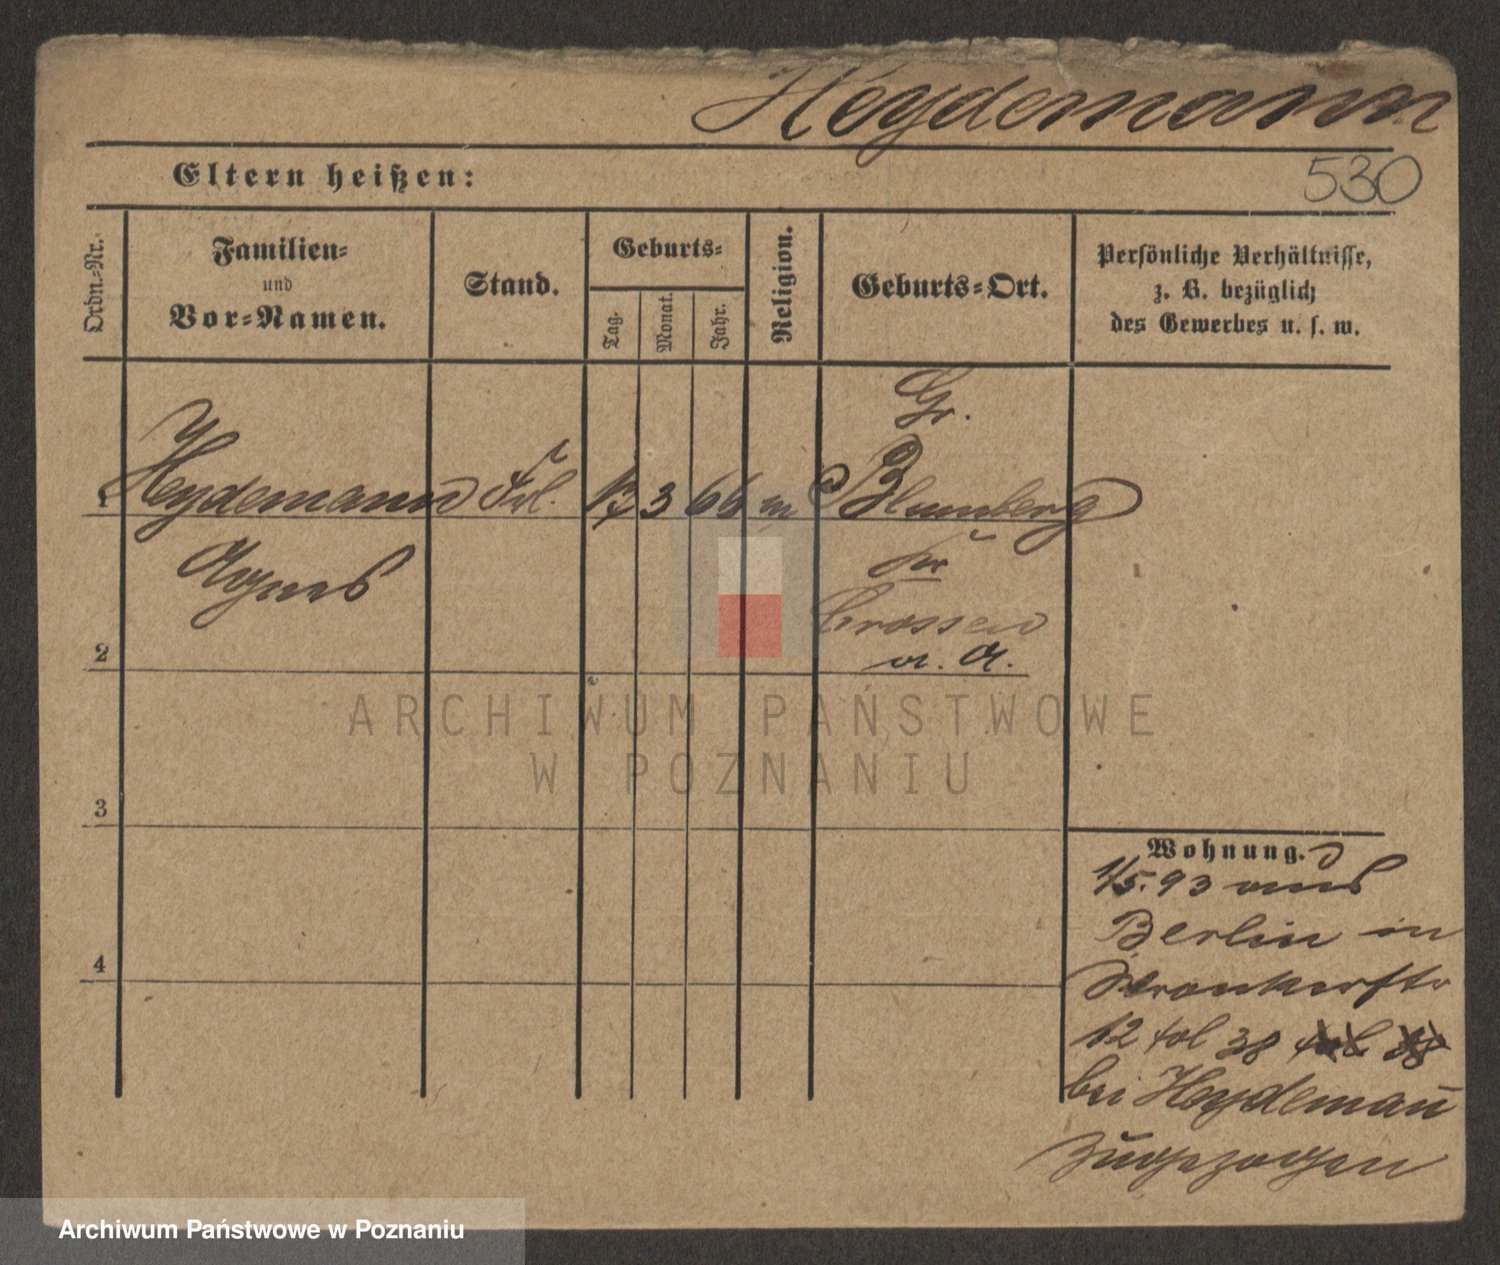 Heydemann
530
Eltern heißen:
Ordn.-Nr.
Familien-
und
Vor-Namen.
Stand.
Geburts-
Tag.
Monat.
Jahr.
Religion.
Geburts-Ort.
Persönliche Verhältnisse,
z. B. bezüglich
des Gewerbes u. s. w.
Gr.
1 Heydemann Frl. 3 66 Blumberg
Agnes Kr
Crossen
2 a. O.
ARCHIWUM PAŃSTWOWE
W POZNANIU
3
4
Wohnung.
1/5. 93 aus
Berlin in
Wronkerstr
12 38
bei Heydemann̄
zugezogen
Archiwum Państwowe w Poznaniu